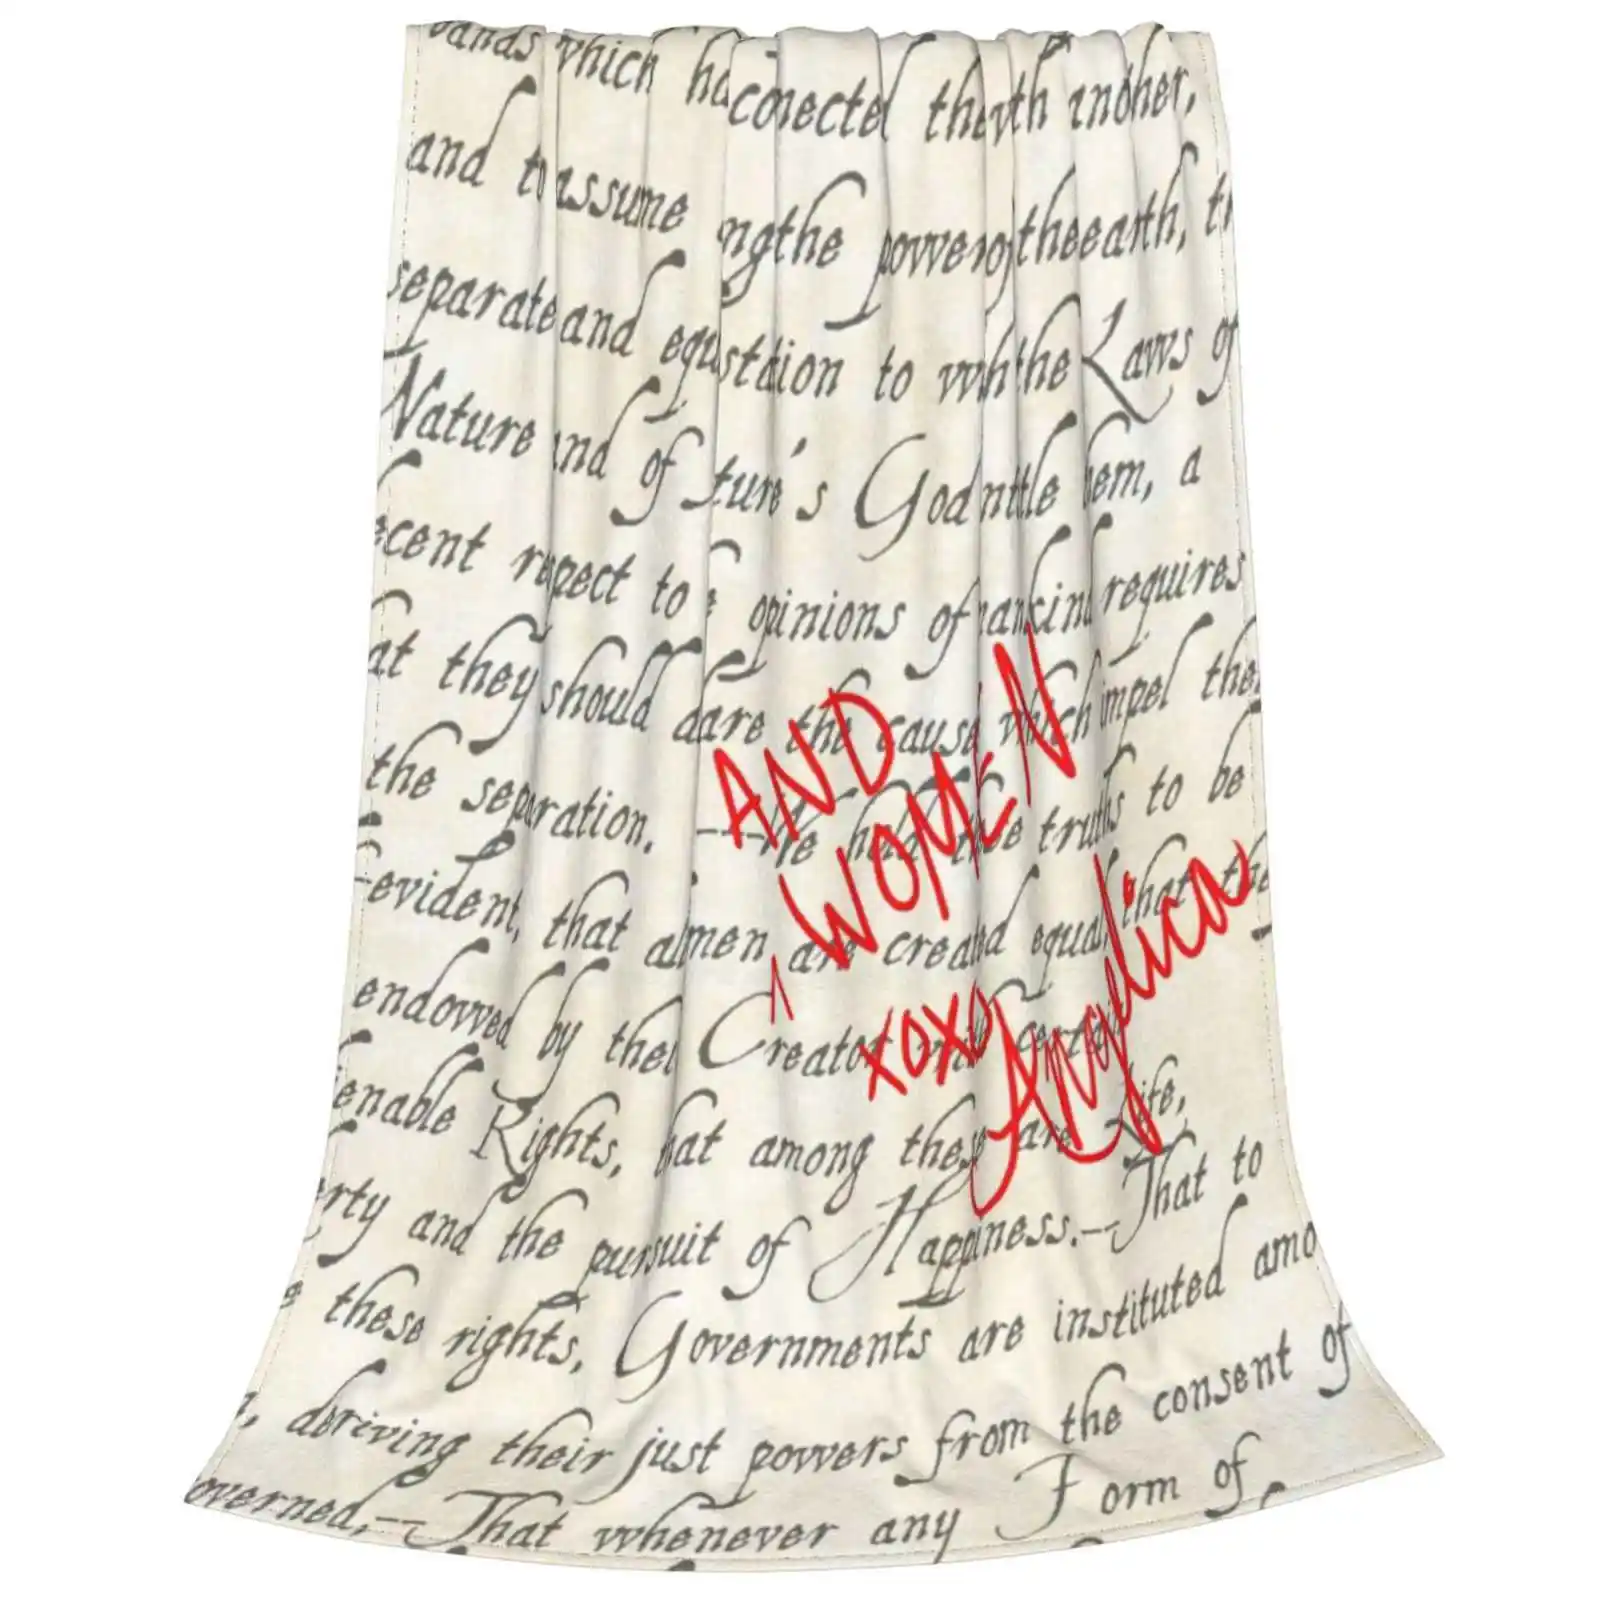 bands which ha conected the with another,
and to assume ng the powers of the earth, th
separate and equ station to which the Laws of
Nature and of ture's God entitle hem, a
ecent repect to e opinions of mankind requires
at they should dare the cause which impel the
the separation. ---We hold these truths to be
-evident, that al men are created equal, that the
AND
WOMEN
endowed by their Creator with certain
xoxo
Angelica
enable Rights, hat among these are Life,
erty and the pursuit of Happiness.--That to
e these rights, Governments are instituted amo
, deriving their just powers from the consent of
overned,--That whenever any Form of